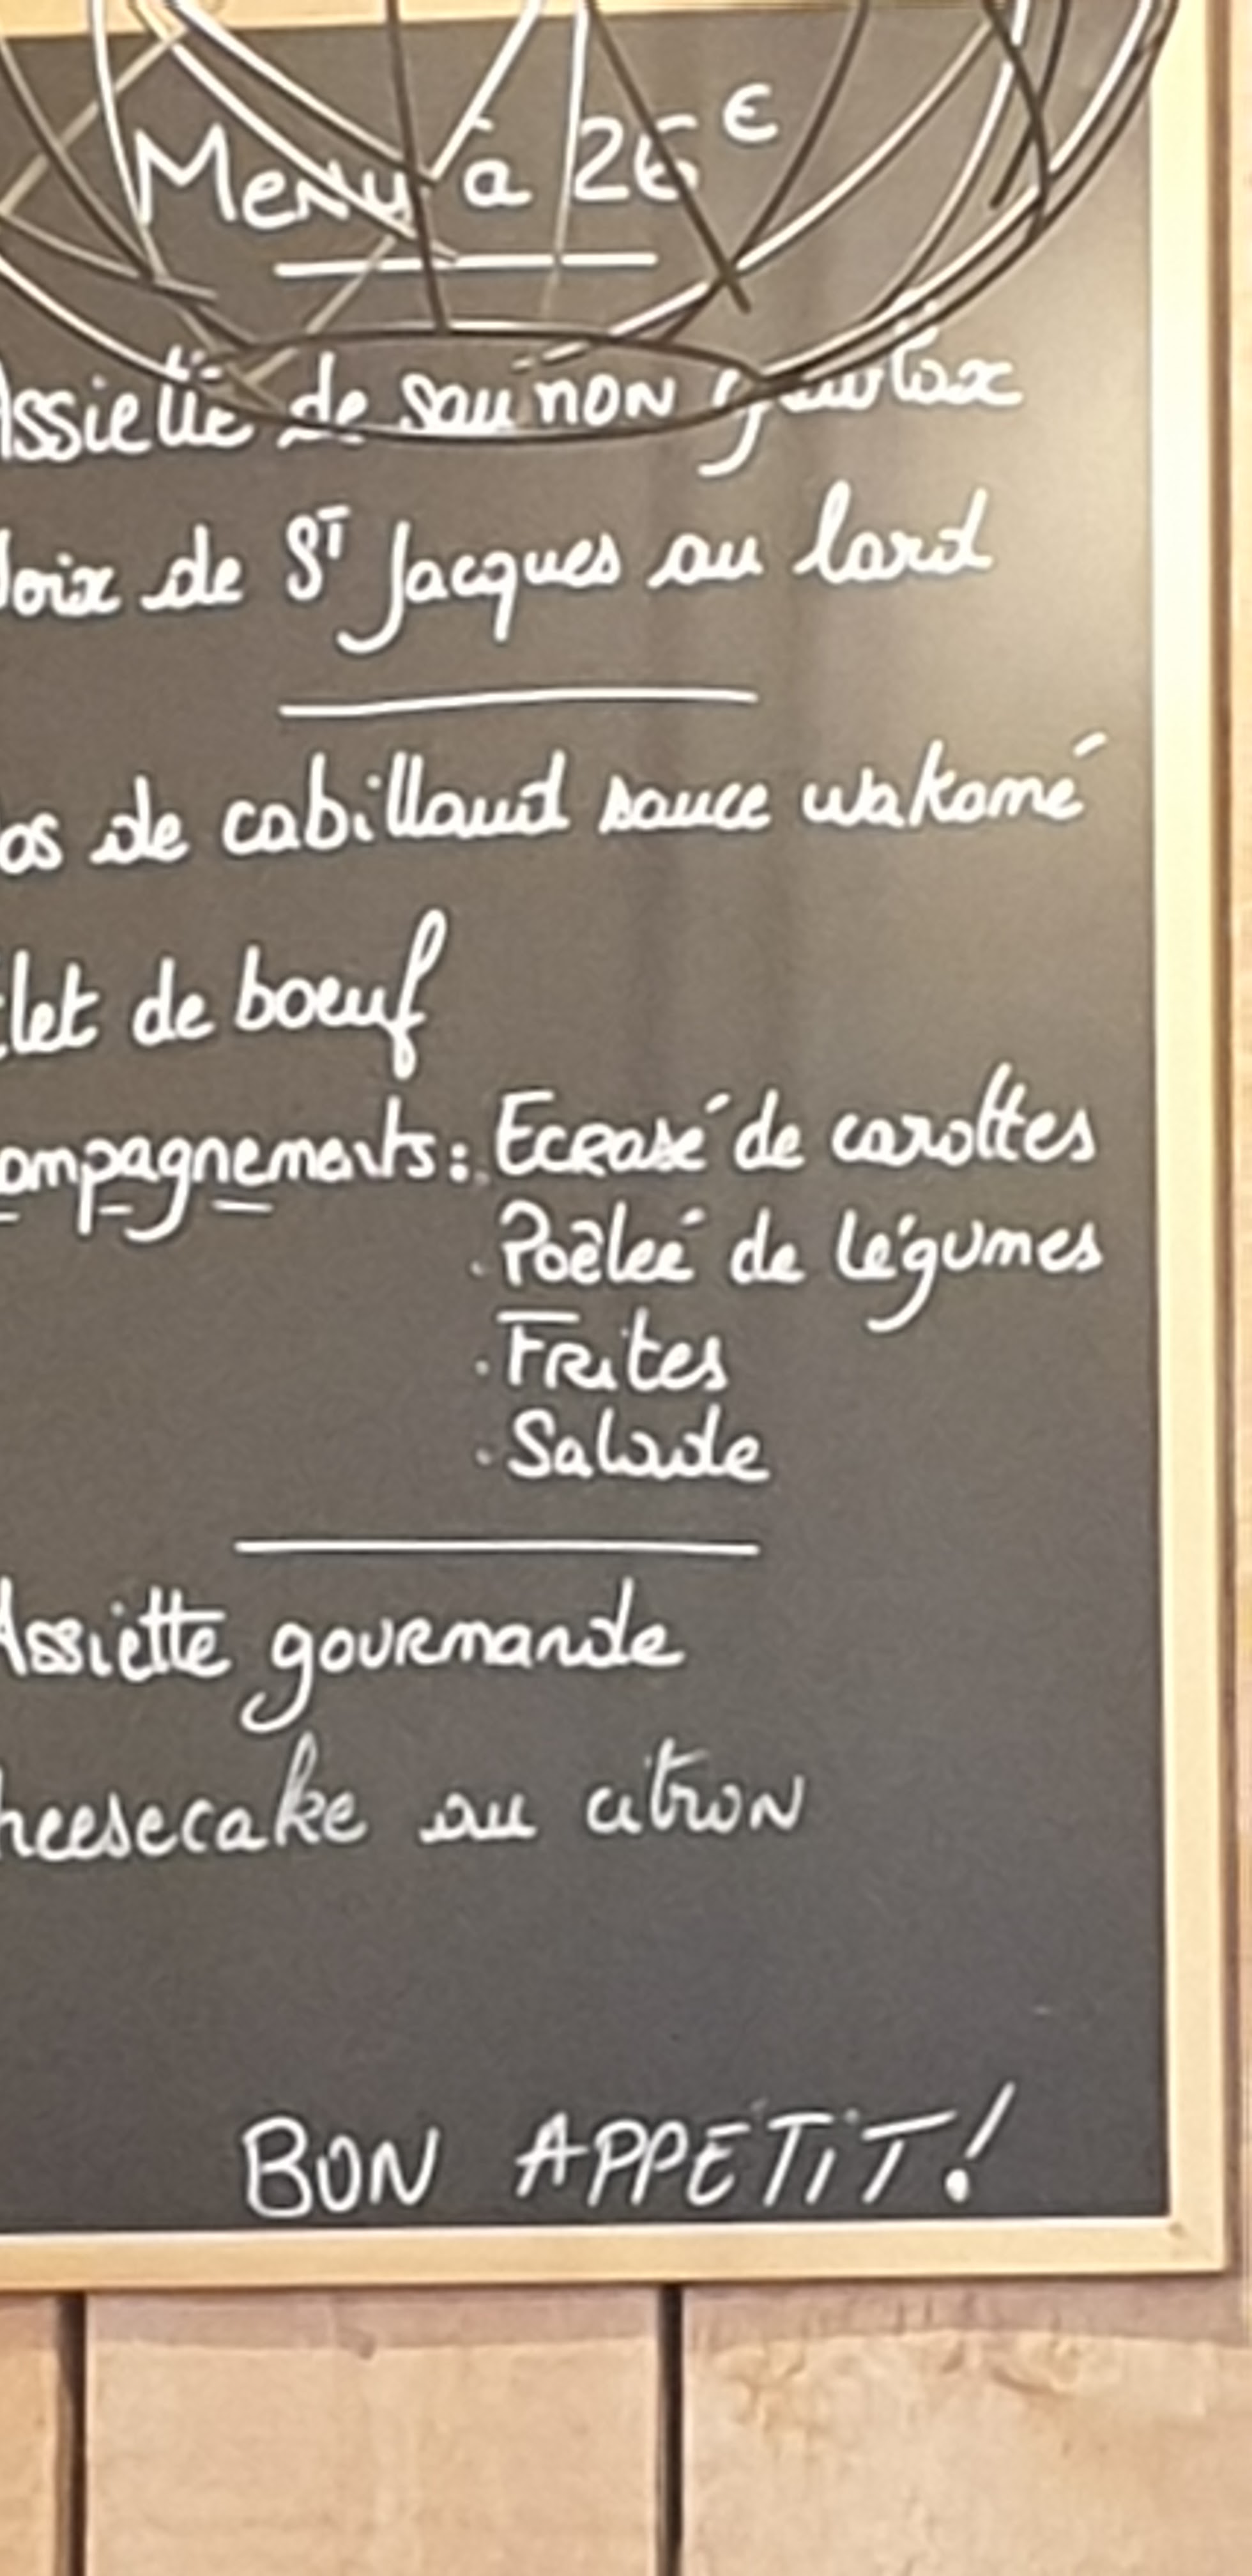 Menu à 26€
Assiette de saumon gravlax
Noix de St Jacques au lard
Dos de cabillaud sauce wakamé
Filet de boeuf
compagnements: Ecrasé de carottes
. Poêlée de légumes
. Frites
. Salade
Assiette gourmande
heesecake au citron
BON APPETIT!